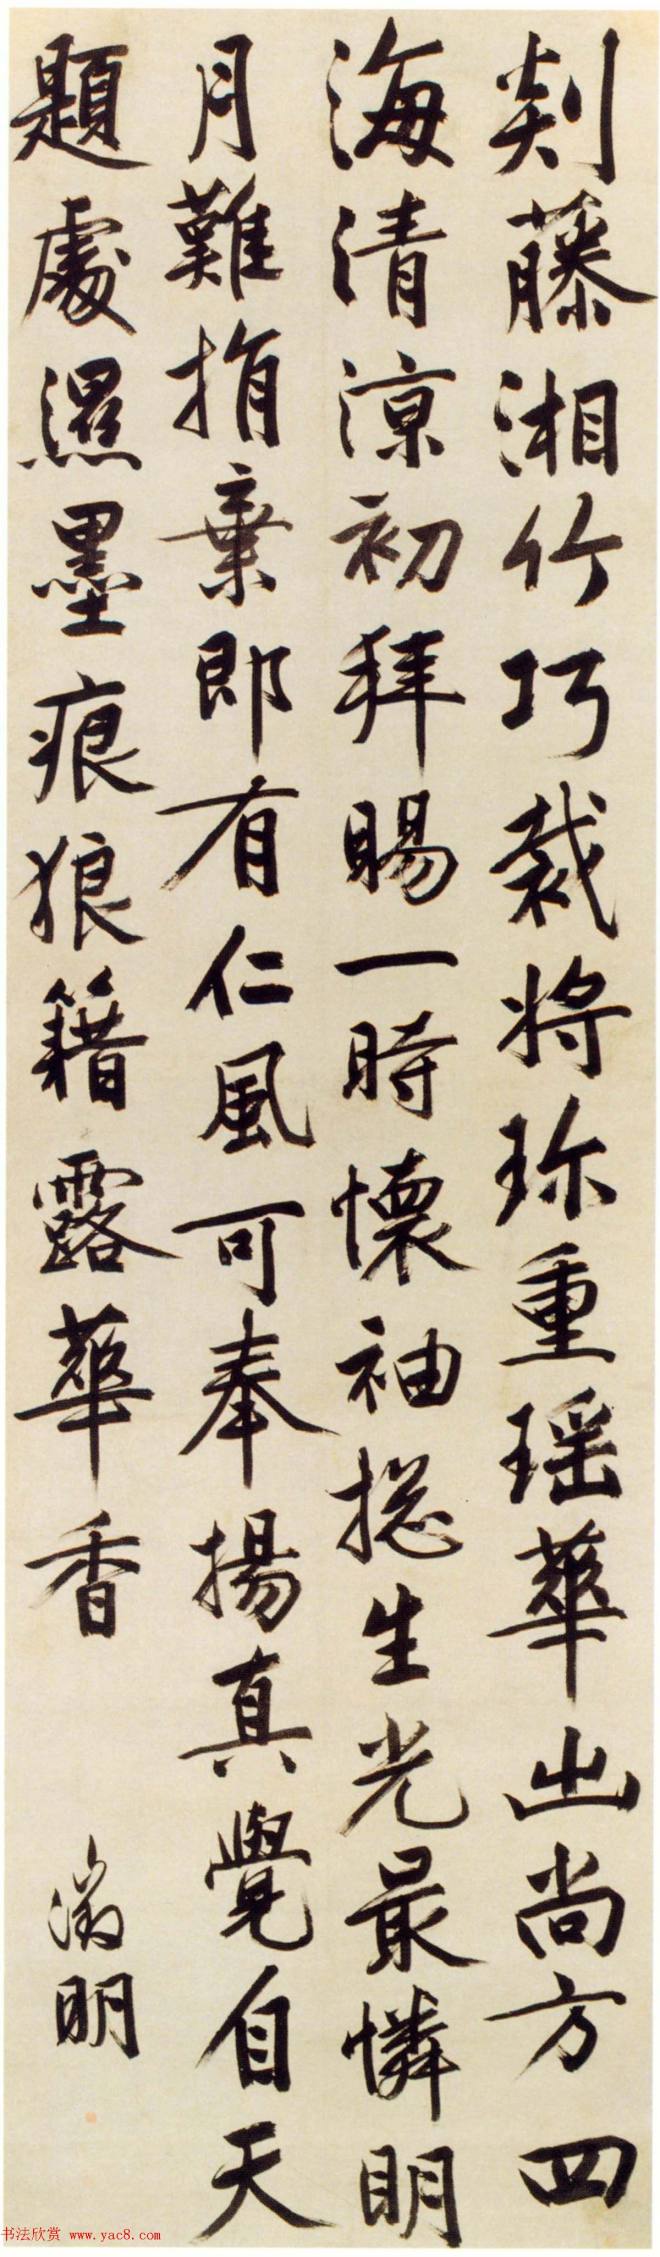 剡藤湘竹巧裁将珎重瑶華出尚方四
海清涼初拜賜一時懷袖揔生光最憐明
月難捐棄即有仁風可奉揚真覺自天
題處濕墨痕狼籍露華香
徵明
书法欣赏 www.yac8.com